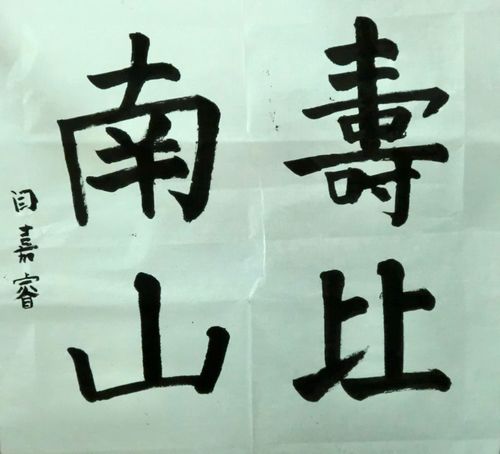 壽比
南山
闫嘉睿